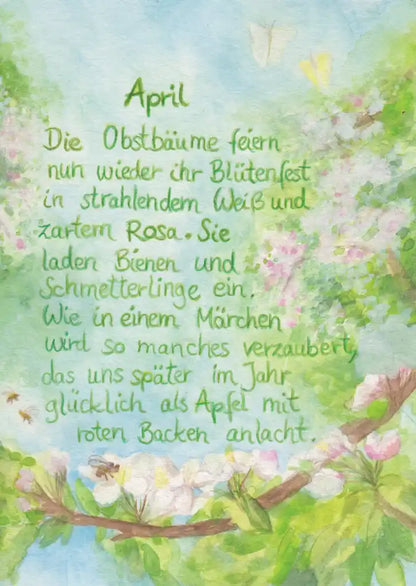 April
Die Obstbäume feiern
nun wieder ihr Blütenfest
in strahlendem Weiß und
zartem Rosa. Sie
laden Bienen und
Schmetterlinge ein.
Wie in einem Märchen
wird so manches verzaubert,
das uns später im Jahr
glücklich als Apfel mit
roten Backen anlacht.